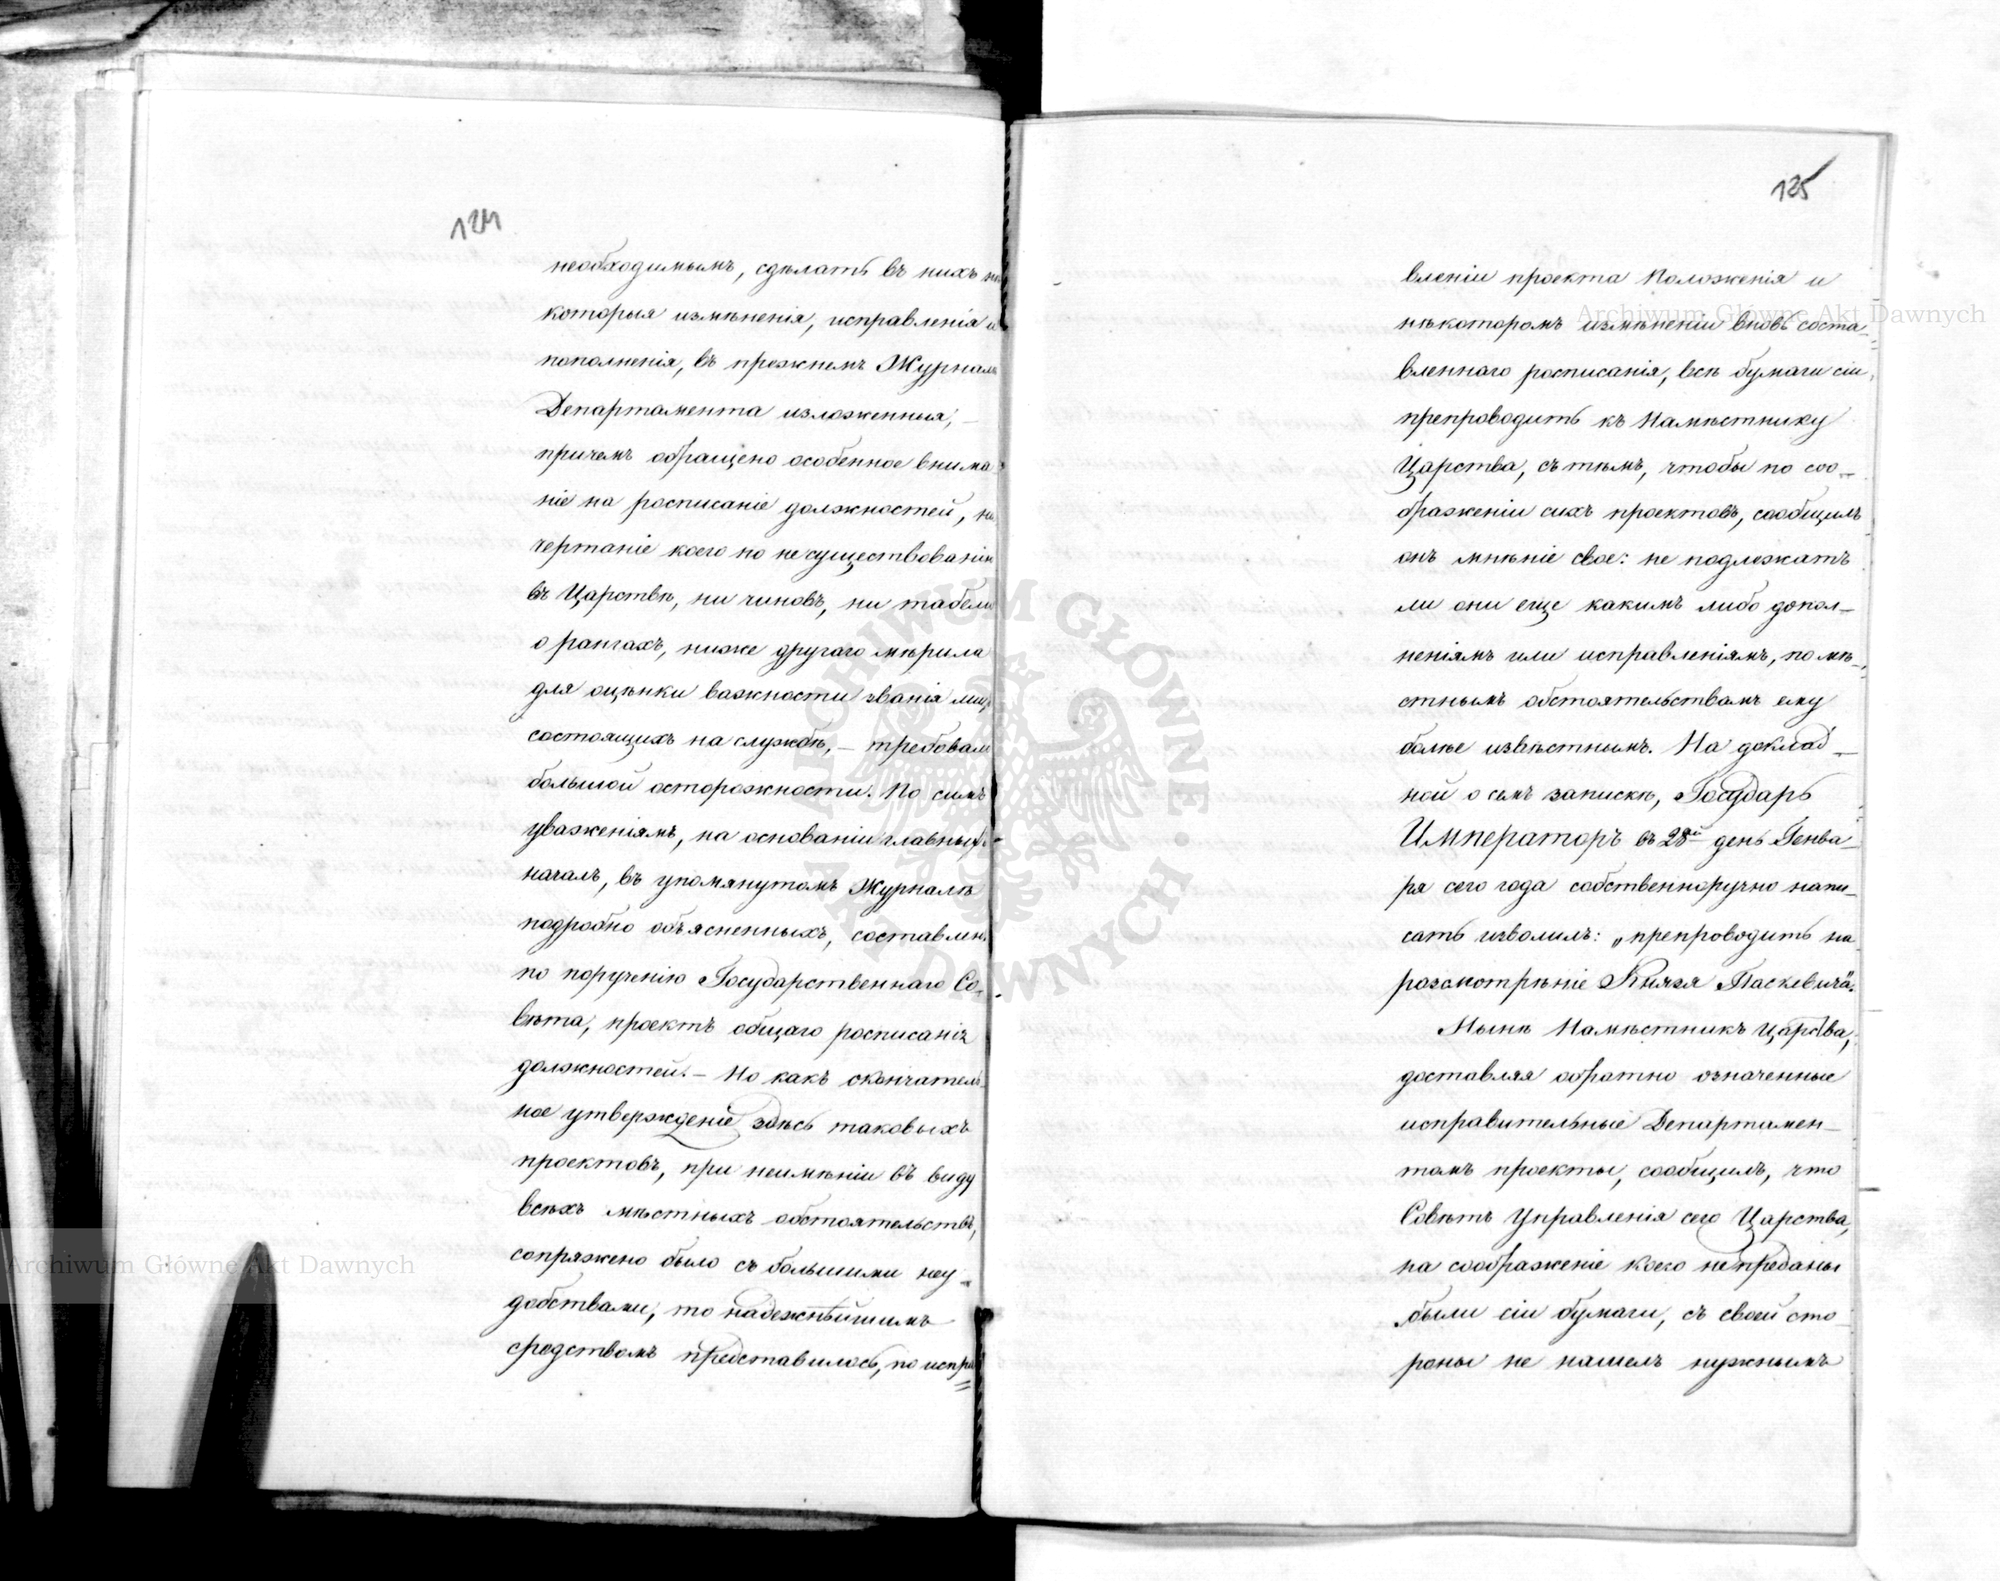 124
необходимымъ, сдѣлать въ нихъ нѣ
которыя измѣненія, исправленія и
пополненія, въ прежнемъ Журналѣ
Департамента изложенныя, —
причемъ обращено особенное внима
ніе на росписаніе должностей, на
чертаніе коего по несуществованію
въ Царствѣ, ни чиновъ, ни табели
о рангахъ, ниже другаго мѣрила
для оцѣнки важности званія лицъ
состоящихъ на службѣ, — требовало
большой осторожности. По симъ
уваженіямъ, на основаніи главныхъ
началъ, въ упомянутомъ Журналѣ
подробно объясненныхъ, составленъ
по порученію Государственнаго Со-
вѣта, проектъ общаго росписанія
должностей. — Но какъ окончатель
ное утвержденіе здѣсь таковыхъ
проектовъ, при неимѣніи въ виду
всѣхъ мѣстныхъ обстоятельствъ,
сопряжено было съ большими неу-
добствами, то надежнѣйшимъ
средствомъ представилось, по испра=
125
вленіи проекта Положенія и
нѣкоторомъ измѣненіи вновь соста-
вленнаго росписанія, всѣ бумаги сіи
препроводить къ Намѣстнику
Царства, съ тѣмъ, чтобы по соо-
браженіи сихъ проектовъ, сообщилъ
онъ мнѣніе свое: не подлежатъ
ли они еще какимъ либо допол-
неніямъ или исправленіямъ, по мѣ-
стнымъ обстоятельствамъ ему
болѣе извѣстнымъ. На доклад-
ной о семъ запискѣ, Государь
Императоръ въ 28й день Генва-
ря сего года собственноручно напи-
сать изволилъ: „препроводить на
разсмотрѣніе Князя Паскевича“.
Нынѣ Намѣстникъ Царства,
доставляя обратно означенные
исправительные Департамен-
томъ проекты, сообщилъ, что
Совѣтъ Управленія сего Царства,
на соображеніе коего непреданы
были сіи бумаги, съ своей сто
роны не нашелъ нужнымъ
Archiwum Główne Akt Dawnych
Archiwum Główne Akt Dawnych
ARCHIWUM GŁÓWNE AKT DAWNYCH